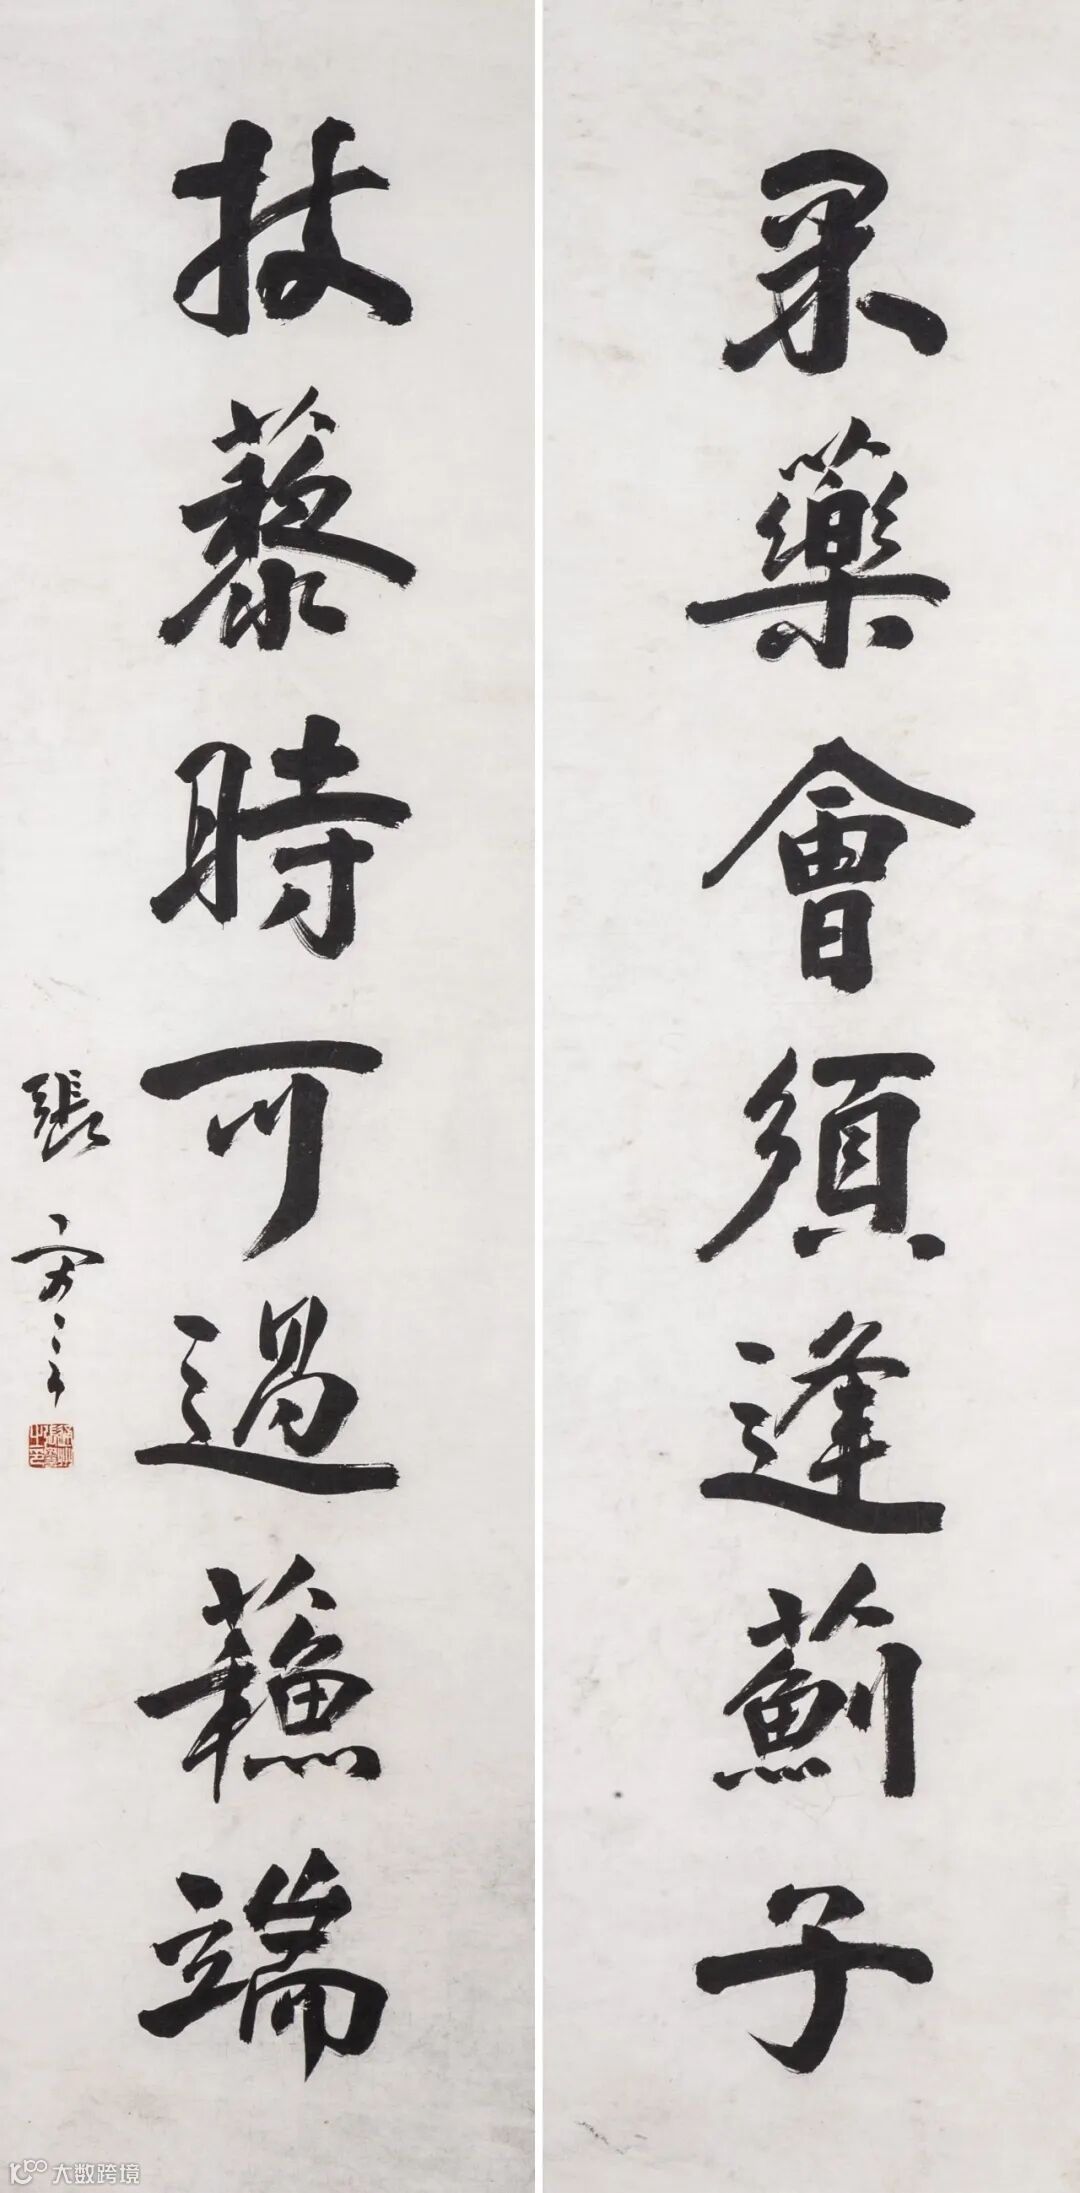 采藥會須逢薊子
杖藜時可過蘓端
張謇
大数跨境